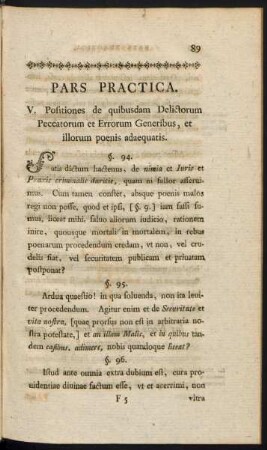 89
PARS PRACTICA.
V. Positiones de quibusdam Delictorum
Peccatorum et Errorum Generibus, et
illorum poenis adaequatis.
§. 94.
Satis dictum hactenus, de nimia et Iuris et
Praxis criminalis duritie, quam ni fallor asserui-
mus. Cum tamen constet, absque poenis malos
regi non posse, quod et ipsi, [§. 9.] iam fassi su-
mus, liceat mihi, salvo aliorum indicio, rationem
inire, quousque mortali in mortalem, in rebus
poenarum procedendum credam, vt non, vel cru-
delis fiat, vel securitatem publicam et priuatam
postponat?
§. 95.
Ardua quaestio! in qua soluenda, non ita leui-
ter procedendum. Agitur enim et de Securitate et
vita nostra, [quae prorsus non est in arbitraria no-
stra potestate,] et an illam Malis, et in quibus tan-
dem casibus, adimere, nobis quandoque liceat?
§. 96.
Istud ante omnia extra dubium est, cura pro-
uidentiae diuinae factum esse, vt et acerrimi, non
F 5
vltra